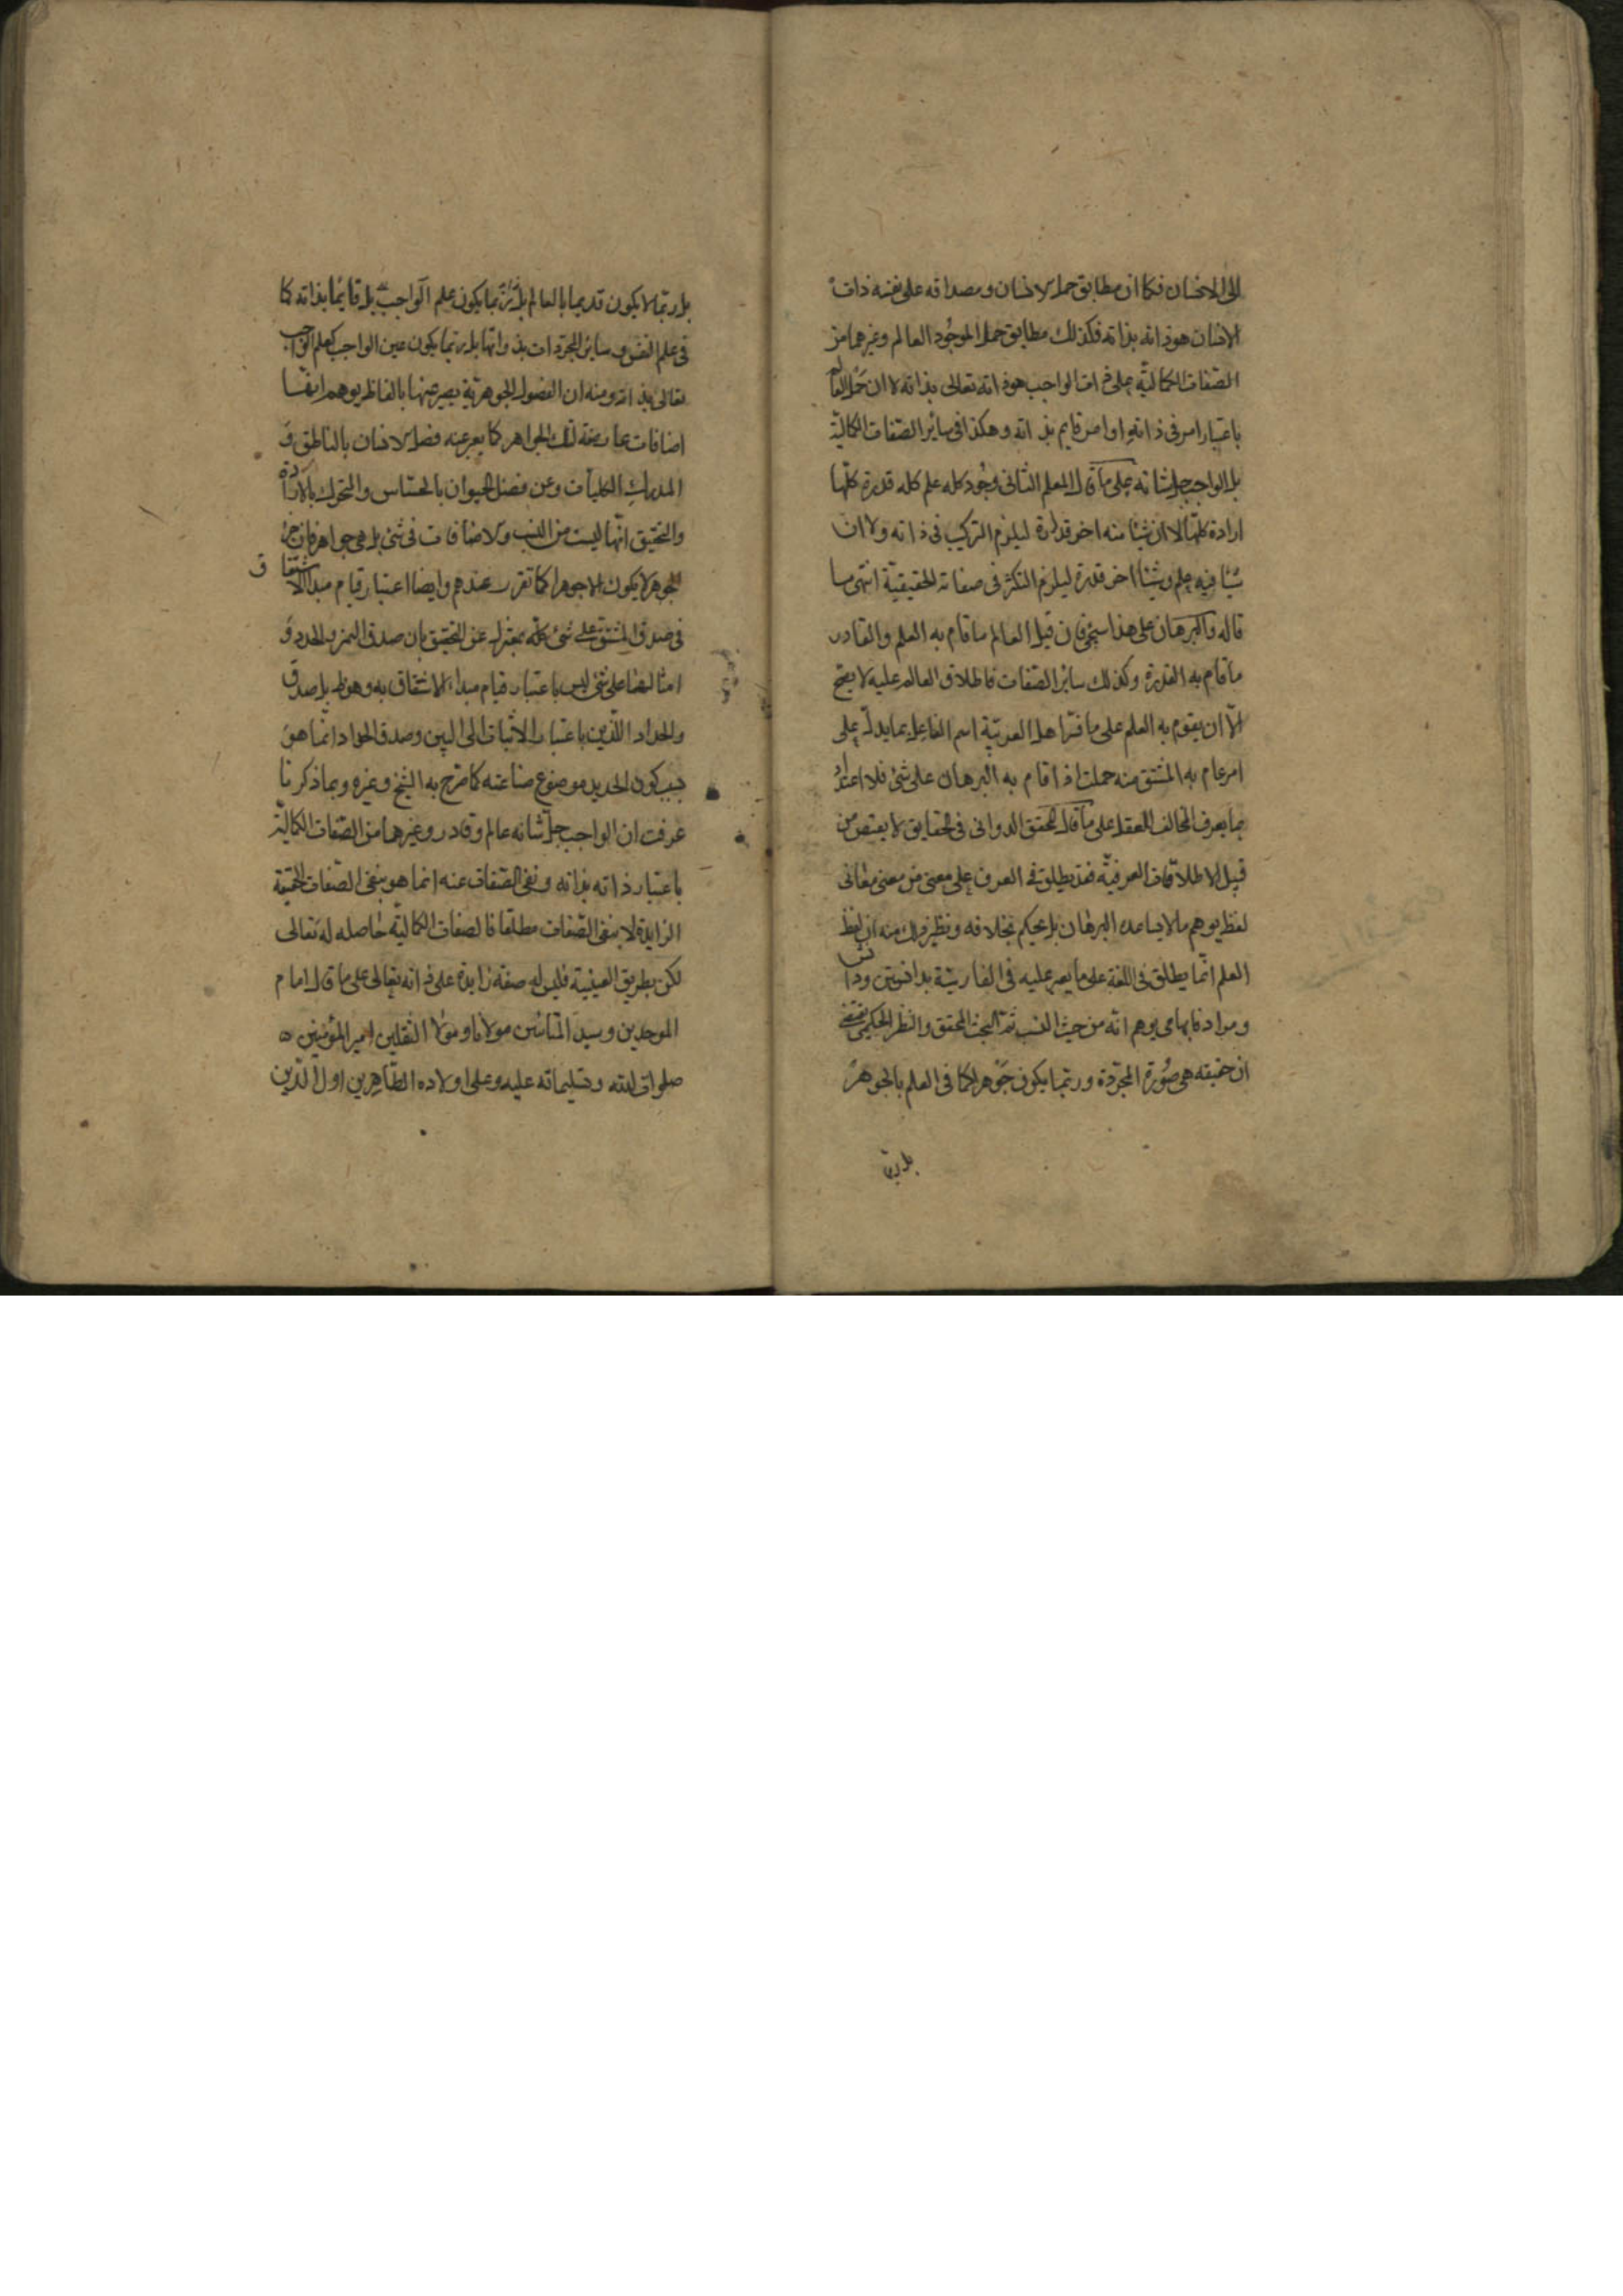 الى الانسان فكما ان مطابق حمل الانسان ومصداقه على نفسه ذات
الانسان هو ذاته بذاته فكذلك مطابق حمل الموجود العالم وغيرهما من
الصفات الكمالية على ذات الواجب هو ذاته تعالى بذاته لا ان حمل العالم
باعتبار امر فى ذاته او امر قايم بذاته وهكذا فى ساير الصفات الكمالية
بل الواجب جل شانه على ما قال المعلم الثانى وجود كله علم كله قدرة كلها
ارادة كلها لا ان شيئا منه اخر قدرة ليلزم التركيب فى ذاته ولا ان
شيئا فيه علم وشيئا اخر قدرة ليلزم التكثر فى صفاته الحقيقية انتهى ما
قاله والبرهان على هذا سيجئ فان قيل العالم ما قام به العلم والقادر
ما قام به القدرة وكذلك ساير الصفات فاطلاق العالم عليه لا يصح
الا ان يقوم به العلم على ما فسر اهل العربية اسم الفاعل بما يدل على
امر قام به المشتق منه حملت اذا قام به البرهان على شئ فلا اعتداد
بما يعرف المخالف للعقل على ما قال المحقق الدوانى فى الحقايق لا يقتنص من
قبيل الاطلاقات العرفية فقد يطلق فى العرف على معنى من معنى معانى
لفظ يوهم ما لا يساعده البرهان بل يحكم بخلافه ونظير ذلك منه ان لفظ
العلم انما يطلق فى اللغة على ما يعبر عليه فى الفارسية بدانستن ودانش
ومرادفاتهما مما يوهم انه من حيث النسب ثم البحث المحقق والنظر الحكمى يقتضى
ان حقيقته هى صورة المجردة وربما يكون جوهرا كما فى العلم بالجوهر
بل ربما
بل ربما لا يكون قديما بالعالم بل ربما يكون علم الواجب بل قايما بذاته كما
فى علم النفس وساير المجردات بذواتها بل ربما يكون عين الواجب كعلم الواجب
تعالى بذاته ومنه ان الفصول الجوهرية يعبر عنها بالفاظ يوهم انها
اضافات عارضة لتلك الجواهر كما يعبر عنه فصل الانسان بالناطق و
المدرك الكليات وعن فصل الحيوان بالحساس والمتحرك بالارادة
والتحقيق انها ليست من النسب والاضافات فى شئ بل هى جواهر فان جزء
الجوهر لا يكون الا جوهرا كما تقرر عندهم وايضا اعتبار قيام مبدا الاشتقاق
فى صدق المشتق على شئ كلّه بمعزل عن التحقيق فان صدق المتمر والحداد و
امثالهما على شئ ليس باعتبار قيام مبدا الاشتقاق به وهو ظ بل صدق
والحداد اللذين باعتبار الاثبات الى اللبن وصدق الحداد انما هو
بسبب كون الحديد موضوع صناعته كما صرح به الشيخ وغيره وبما ذكرنا
عرفت ان الواجب جل شانه عالم وقادر وغيرهما من الصفات الكمالية
باعتبار ذاته بذاته ونفى الصفات عنه انما هو بنفى الصفات الحقيقية
الزايدة لا بنفى الصفات مطلقا فالصفات الكمالية حاصله له تعالى
لكن بطريق العينية فليس له صفة زايدة على ذاته تعالى على ما قال امام
الموحدين وسيد المتالهين مولانا ومولا الثقلين امير المؤمنين
صلوات الله وتسليماته عليه وعلى اولاده الطاهرين اول الدين